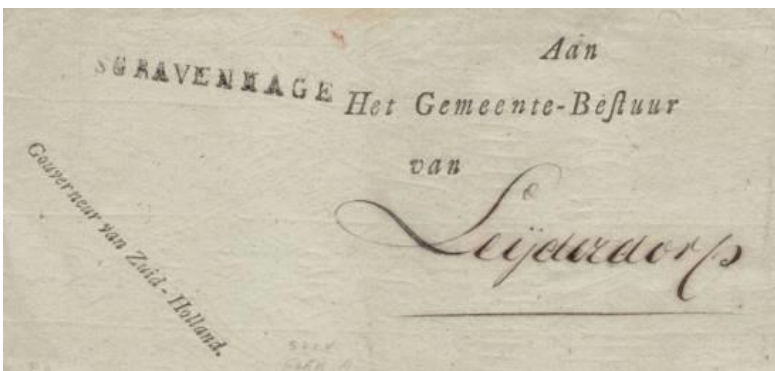 SGRAVENHAGE
Aan
Het Gemeente-Beſtuur
van
Leÿderdorp
Gouverneur van Zuid-Holland.